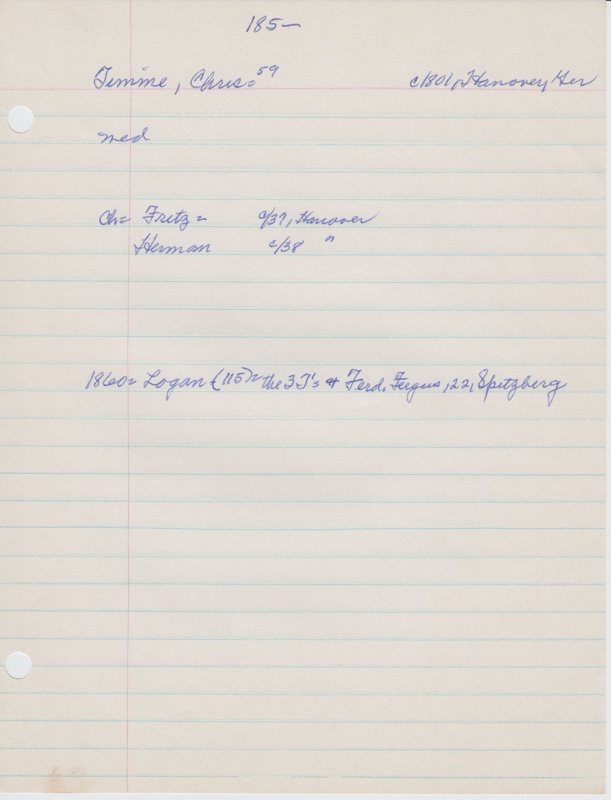 185-
Temme, Chris= 59 c/801, Hanover, Ger
med
Ch= Fritz= c/37, Hanover
Herman c/38 "
1860= Logan (115)= the 3 T's + Ferd. Fergus, 22, Spitzberg